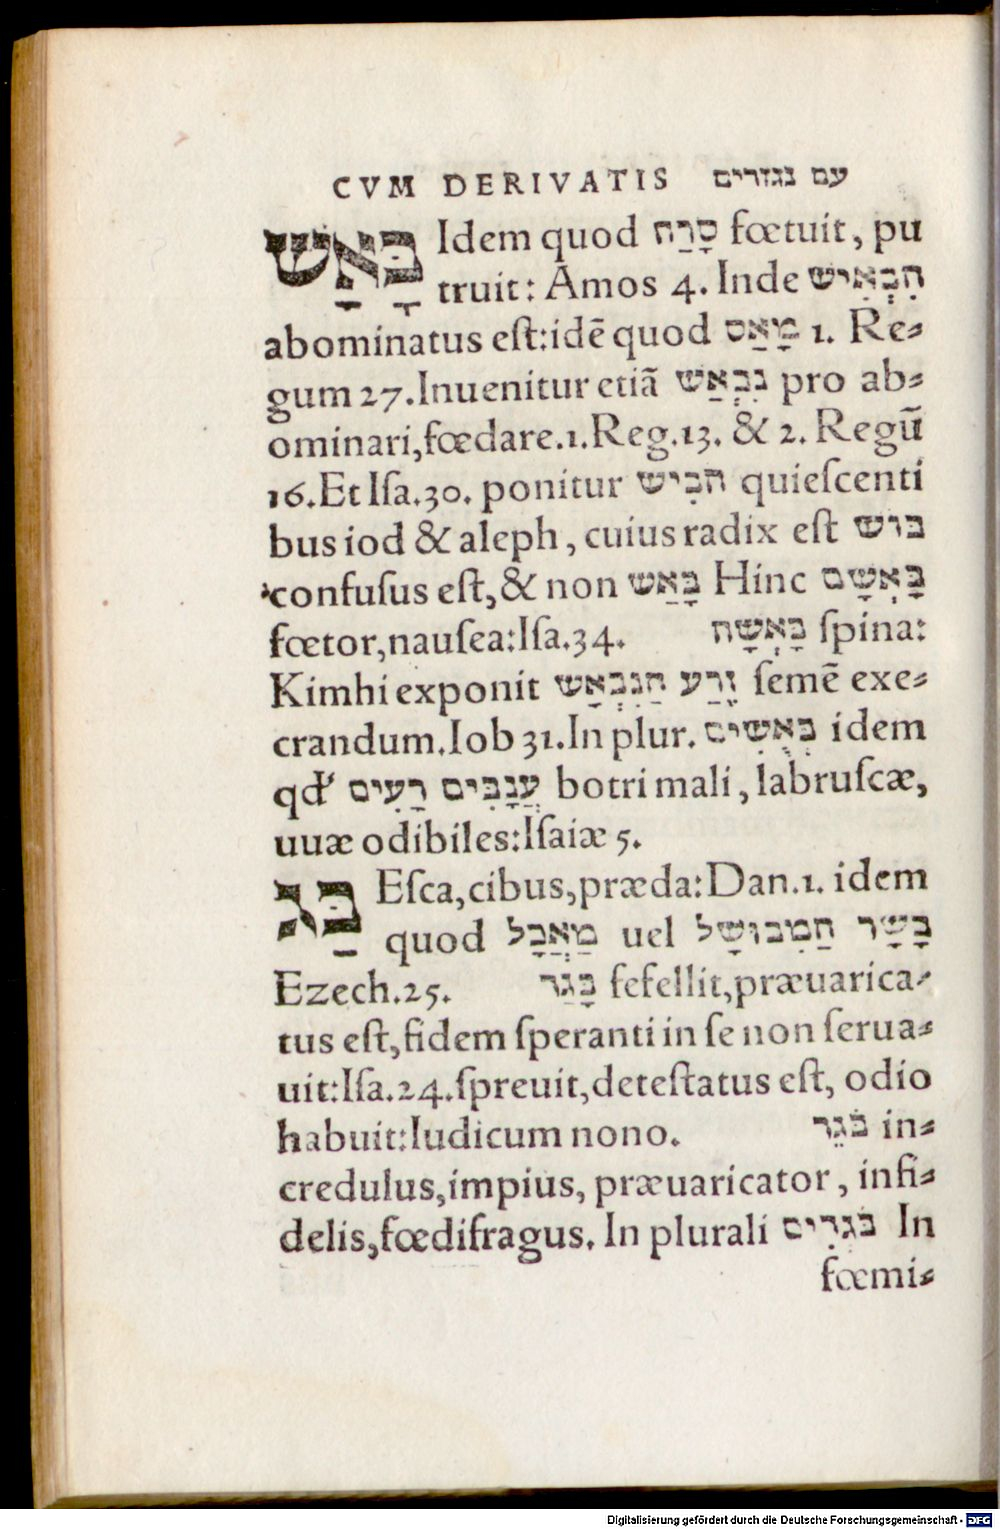 CVM DERIVATIS עם נגזרים
בָּאָשׁ Idem quod סָרַח fœtuit, pu
truit: Amos 4. Inde הִבְאִישׁ
abominatus eſt:idē quod מָאַס 1. Re⸗
gum 27.Inuenitur etiā נִבְאַשׁ pro ab⸗
ominari,fœdare.1.Reg.13. & 2. Regū
16.Et Iſa.30. ponitur הבִישׁ quieſcenti
bus iod & aleph, cuius radix eſt בוש
confuſus eſt,& non בָּאַשׁ Hinc בָּאְשָׁם
fœtor,nauſea:Iſa.34. בָּאְשָׁה ſpina:
Kimhi exponit זֶרַע הַנִבְאָשׁ ſemē exe⸗
crandum.Iob 31.In plur. בְּאֻשִׁים idem
qđ עֲנָבִּים רָעִים botri mali, labruſcæ,
uuæ odibiles:Iſaiæ 5.
בַּג Eſca,cibus,præda:Dan.1. idem
quod מַאֲכָל uel בָּשָׂר הַמְבוּשָּׁל
Ezech.25. בָּגַד fefellit,præuarica⸗
tus eſt,fidem ſperanti in ſe non ſerua⸗
uit:Iſa.24.ſpreuit,deteſtatus eſt, odio
habuit:Iudicum nono. בֹּגֵד in⸗
credulus,impius, præuaricator, infi⸗
delis,fœdifragus. In plurali בֹּגְדִים In
fœmi⸗
Digitalisierung gefördert durch die Deutsche Forschungsgemeinschaft - DFG